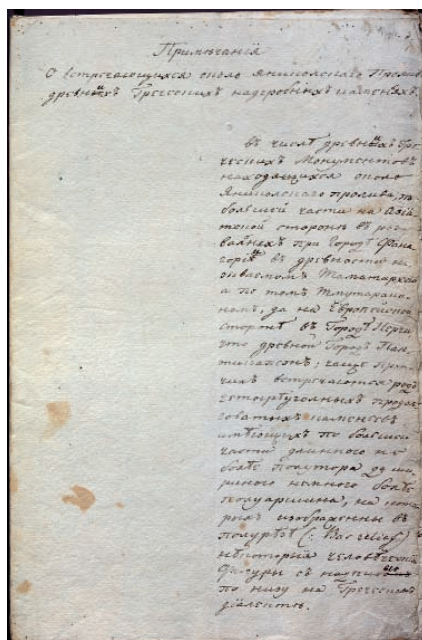 Примѣчанія
О встречающихся около Яникольскаго Пролива
древнихъ Греческихъ надгробныхъ камняхъ.
въ числѣ древнихъ Гре
ческихъ Монументовъ
находящихся около
Яникольскаго пролива, по
большей части на Азiят
ской сторонѣ въ раз
валинахъ при Городѣ Фана
горiи въ древности на
зываемом Таматархой
а по томъ Тмутарака
номъ, да на Европейской
сторонѣ въ Городѣ Керчи
что древной Городъ Пан
тикапеонъ; чаще
чихъ встречаются родъ
четыреугольныхъ продол
говатыхъ каменьевъ
имѣющихъ по большей
части длинною не
болѣе полутора
риною немного болѣе
полуаршина, на кото
рыхъ изображенны въ
полурѣзѣ (: Bas relief)
нѣкоторыя человѣческiя
Фигуры съ
по низу на Греческомъ
дiалектѣ.